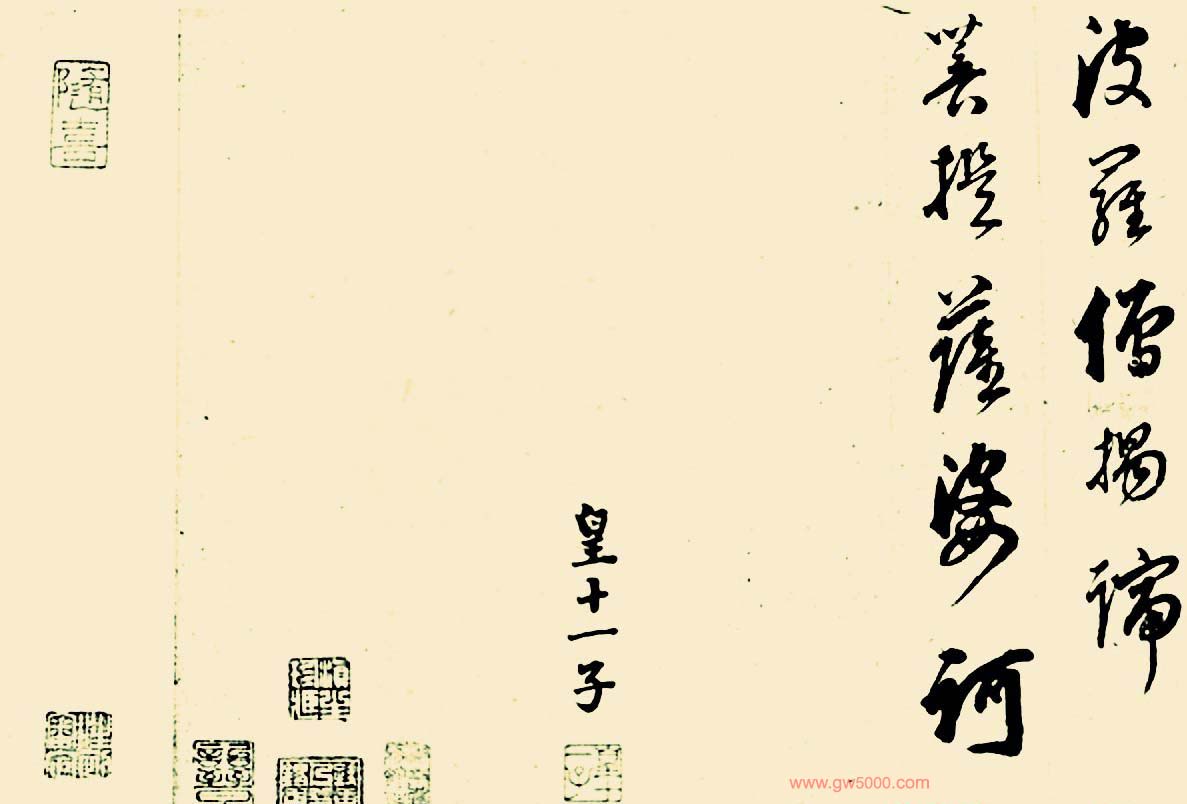 波羅僧揭諦
菩提薩婆訶
皇十一子
隨喜
www.gw5000.com